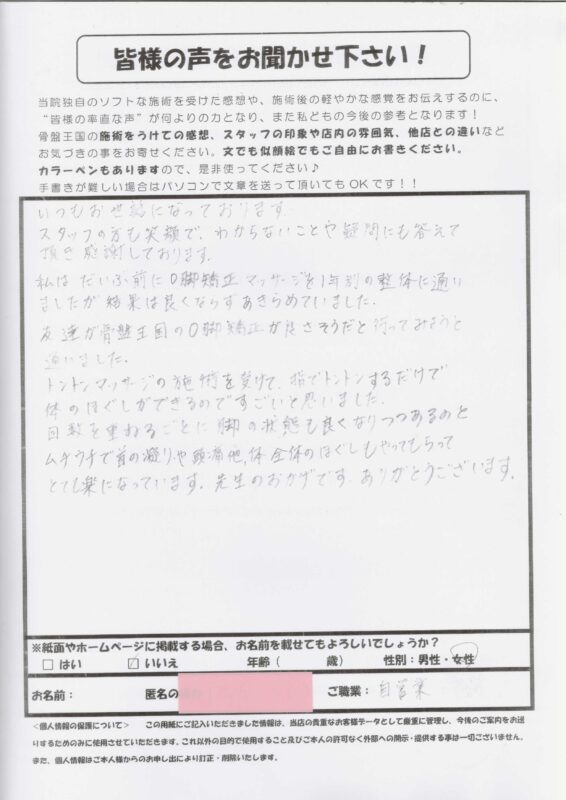 皆様の声をお聞かせ下さい！
当院独自のソフトな施術を受けた感想や、施術後の軽やかな感覚をお伝えするのに、
“皆様の率直な声”が何よりの力となり、また私どもの今後の参考となります！
骨盤王国の施術をうけての感想、スタッフの印象や店内の雰囲気、他店との違いなど
お気づきの事をお寄せください。文でも似顔絵でもご自由にお書きください。
カラーペンもありますので、是非使ってください♪
手書きが難しい場合はパソコンで文章を送って頂いてもOKです！！
いつもお世話になっております。
スタッフの方も笑顔で、わからないことや疑問にも答えて
頂き感謝しております。
私はだいぶ前にO脚矯正マッサージを1年別の整体に通い
ましたが結果は良くならずあきらめていました。
友達が骨盤王国のO脚矯正が良さそうだと行ってみようと
通いました。
トントンマッサージの施術を受けて、指でトントンするだけで
体のほぐしができるのですごいと思いました。
回数を重ねるごとに脚の状態も良くなりつつあるのと
ムチウチで首の凝りや頭痛他、体全体のほぐしもやってもらって
とても楽になっています。先生のおかげです。ありがとうございます。
※紙面やホームページに掲載する場合、お名前を載せてもよろしいでしょうか？
□ はい ☑ いいえ 年齢（ 歳） 性別：男性・女性
お名前： 匿名の ご職業：自営業
＜個人情報の保護について＞ この用紙にご記入いただきました情報は、当店の貴重なお客様データとして厳重に管理し、今後のご案内をお送
りするためのみに使用させていただきます。これ以外の目的で使用すること及びご本人の許可なく外部への開示・提供する事は一切ございません。
また、個人情報はご本人様からのお申し出により訂正・削除いたします。